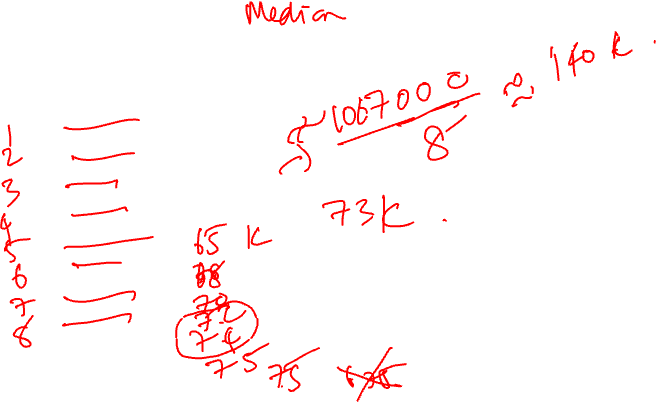 Median
1067000
8
≈ 140 K.
5
73K.
1
2
3
4
5
6
7
8
65 K
68
70
72
74
75 75